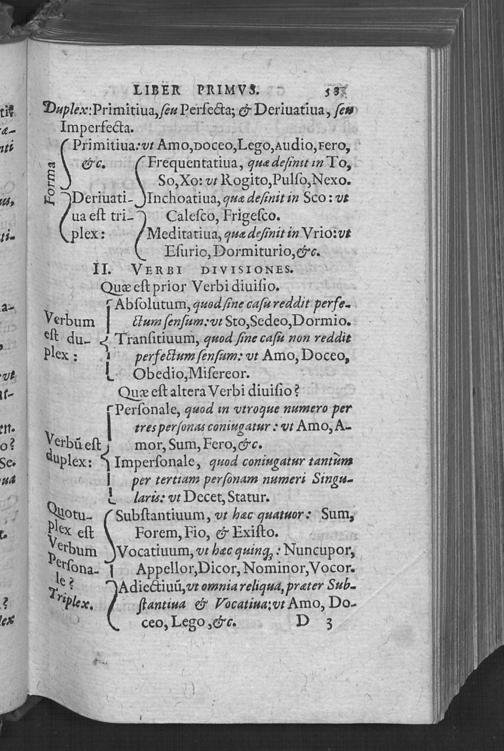 LIBER PRIMVS. 53
Duplex: Primitiua, seu Perfecta; & Deriuatiua, seu
Imperfecta.
Forma
Primitiua: vt Amo, doceo, Lego, Audio, Fero,
&c.
Deriuati-
ua est tri-
plex:
Frequentatiua, quæ desinit in To,
So, Xo: vt Rogito, Pulso, Nexo.
Inchoatiua, quæ desinit in Sco: vt
Calesco, Frigesco.
Meditatiua, quæ desinit in Vrio: vt
Esurio, Dormiturio, &c.
II. VERBI DIVISIONES.
Quæ est prior Verbi diuisio.
Verbum
est du-
plex:
Absolutum, quod sine casu reddit perfe-
ctum sensum: vt Sto, Sedeo, Dormio.
Transitiuum, quod sine casu non reddit
perfectum sensum: vt Amo, Doceo,
Obedio, Misereor.
Quæ est altera Verbi diuisio?
Verbū est
duplex:
Personale, quod in vtroque numero per
tres personas coniugatur: vt Amo, A-
mor, Sum, Fero, &c.
Impersonale, quod coniugatur tantùm
per tertiam personam numeri Singu-
laris: vt Decet, Statur.
Quotu-
plex est
Verbum
Persona-
le?
Triplex.
Substantiuum, vt hæc quatuor: Sum,
Forem, Fio, & Existo.
Vocatiuum, vt hæc quinq;: Nuncupor,
Appellor, Dicor, Nominor, Vocor.
Adiectiuū, vt omnia reliqua, præter Sub-
stantiua & Vocatiua: vt Amo, Do-
ceo, Lego, &c. D 3